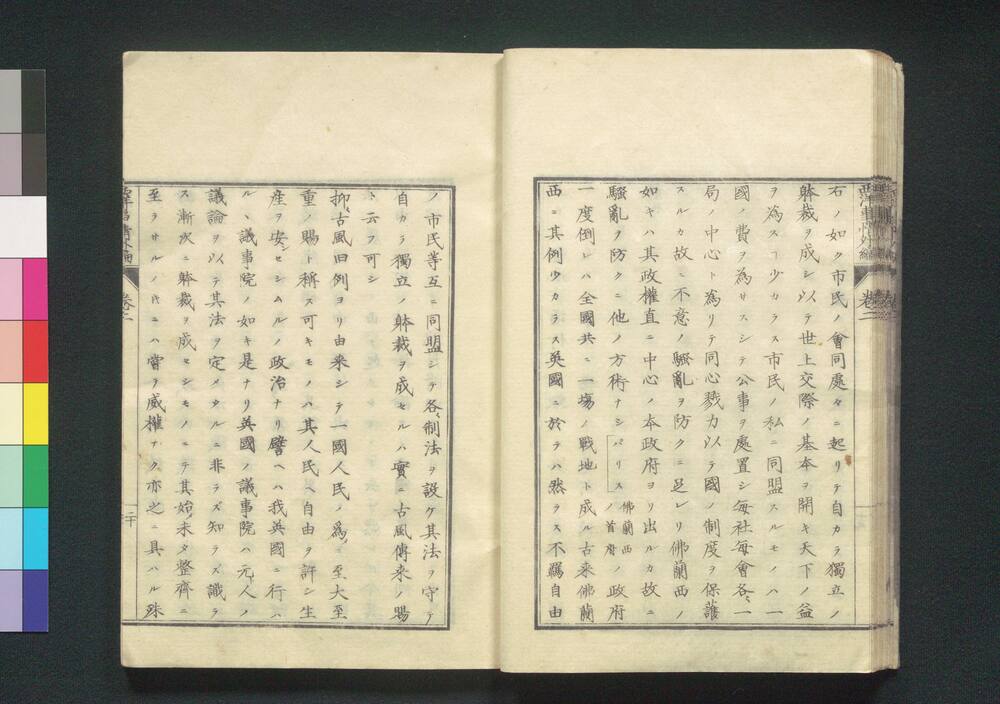 右ノ如ク市民ノ會同處々ニ起リテ自カラ獨立ノ
躰裁ヲ成シ以テ世上交際ノ基本ヲ開キ天下ノ益
ヲ為スヿ少カラス市民ノ私ニ同盟スルモノハ一
國ノ費ヲ為サスシテ公事ヲ處置シ毎社毎會各〻一
局ノ中心ト為リテ同心戮力以テ國ノ制度ヲ保護
スルカ故ニ不意ノ騒亂ヲ防クニ足レリ佛蘭西ノ
如キハ其政權直ニ中心ノ本政府ヨリ出ルカ故ニ
騒亂ヲ防クニ他ノ方術ナシパリス佛蘭西ノ首府ノ政府
一度倒レハ全國共ニ一塲ノ戦地ト成ル古来佛蘭
西ニ其例少カラス英國ニ於テハ然ラス不羈自由
西洋事情外編
卷二
ノ市民等互ニ同盟シテ各〻制法ヲ設ケ其法ヲ守テ
自カラ獨立ノ躰裁ヲ成セルハ實ニ古風傳来ノ賜
ト云フ可シ
抑〻古風旧例ヨリ由来シテ一國人民ノ為ニ至大至
重ノ賜ト稱スヘキモノハ其人民ヘ自由ヲ許シ生
産ヲ安〻セシムルノ政治ナリ譬ヘハ我英國ニ行ハ
ルヽ議事院ノ如キ是ナリ英國ノ議事院ハ元〻人ノ
議論ヲ以テ其法ヲ定メタルニ非ラズ知ラズ識ラ
ス漸次ニ躰裁ヲ成セシモノニテ其始〻未タ整齊ニ
至ラサルノ片ニハ嘗テ威權ナク亦之ニ具ハル殊
西洋事情外編
卷二
二十